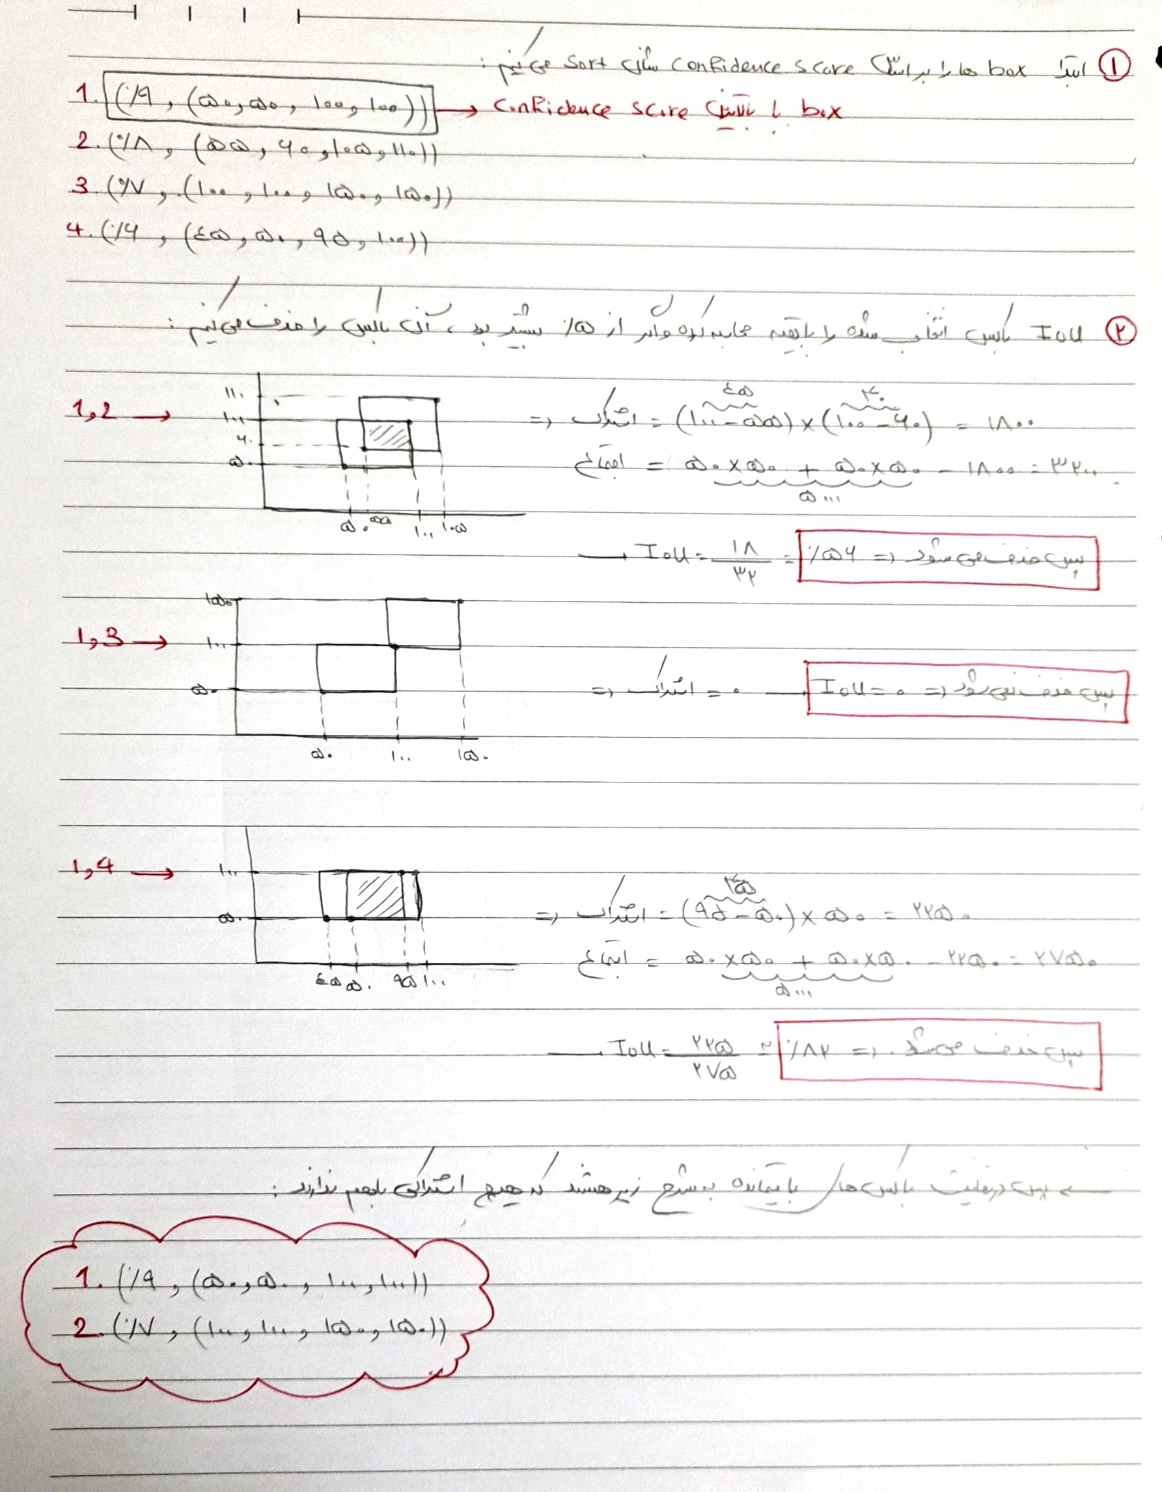 ① ابتدا box ها را بر اساس confidence score شان sort می‌کنیم :
1. (٪۹ , (۵۰,۵۰ , ۱۰۰,۱۰۰)) → box با بالاترین confidence score
2. (٪۸ , (۵۵, ۶۰, ۱۰۵, ۱۱۰))
3. (٪۷ , (۱۰۰, ۱۰۰, ۱۵۰, ۱۵۰))
4. (٪۶ , (۴۵, ۵۰, ۹۵, ۱۰۰))
② IoU باکس انتخاب شده را با بقیه محاسبه کرده و اگر از ٪۵ بیشتر بود، آن باکس را حذف می‌کنیم :
1,2 →
۱۱۰
۱۰۰
۶۰
۵۰
۵۰ ۵۵ ۱۰۰ ۱۰۵
۴۵ ۴۰
⇒ اشتراک = (۱۰۰-۵۵) × (۱۰۰-۶۰) = ۱۸۰۰
اجتماع = ۵۰×۵۰ + ۵۰×۵۰ - ۱۸۰۰ = ۳۲۰۰
۵۰۰۰
→ IoU = ۱۸/۳۲ = ٪۵۶ ⇒ پس حذف می‌شود
1,3 →
۱۵۰
۱۰۰
۵۰
۵۰ ۱۰۰ ۱۵۰
⇒ اشتراک = ۰ → IoU = ۰ ⇒ پس حذف نمی‌شود
1,4 →
۱۰۰
۵۰
۴۵ ۵۰ ۹۵ ۱۰۰
۴۵
⇒ اشتراک = (۹۵-۵۰) × ۵۰ = ۲۲۵۰
اجتماع = ۵۰×۵۰ + ۵۰×۵۰ - ۲۲۵۰ = ۲۷۵۰
۵۰۰۰
→ IoU = ۲۲۵/۲۷۵ ≃ ٪۸۲ ⇒ پس حذف می‌شود.
← پس در نهایت باکس‌های باقیمانده به شرح زیر هستند که هیچ اشتراکی باهم ندارند :
1. (٪۹ , (۵۰,۵۰ , ۱۰۰,۱۰۰))
2. (٪۷ , (۱۰۰,۱۰۰, ۱۵۰, ۱۵۰))